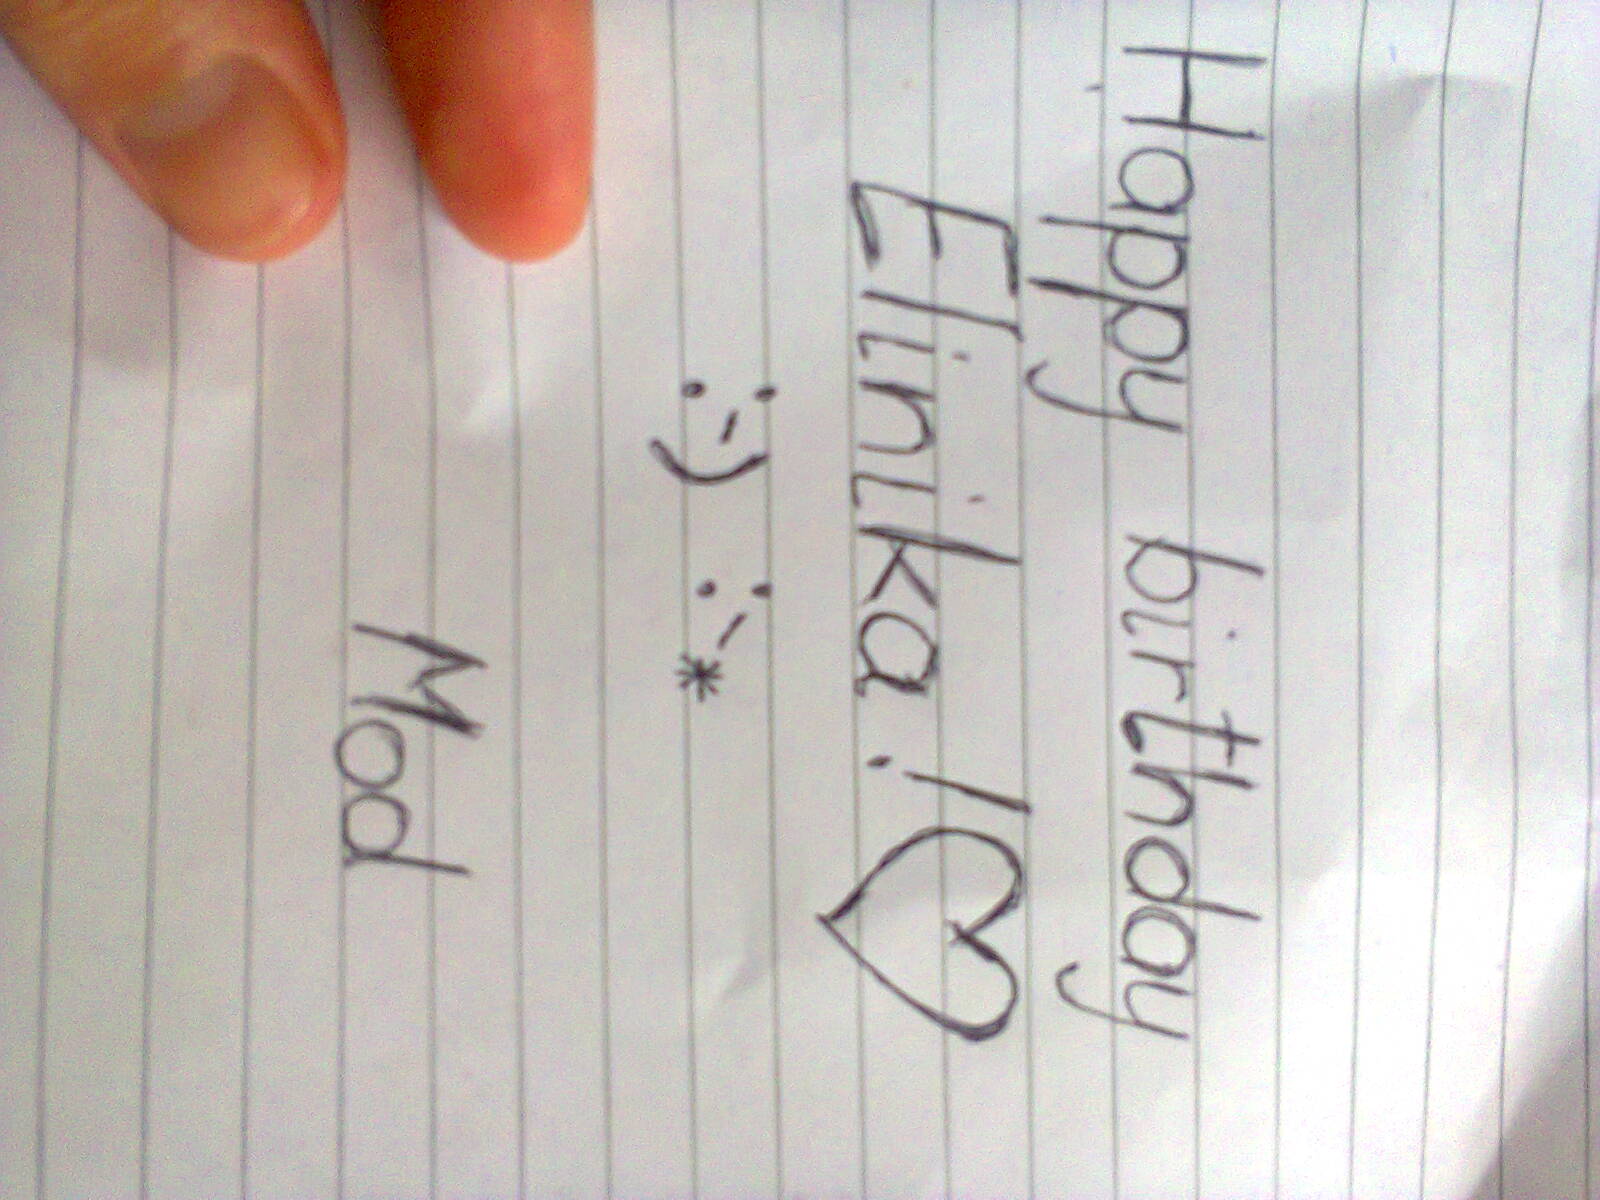 Happy birthday
Elinika! ♡
:-) :-*
Mod